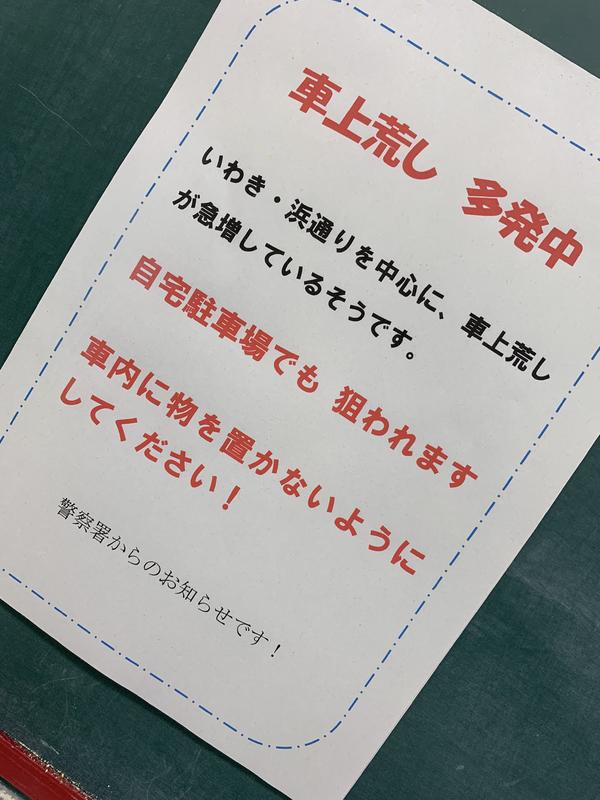 車上荒し 多発中
いわき・浜通りを中心に、車上荒し
が急増しているそうです。
自宅駐車場でも 狙われます
車内に物を置かないように
してください！
警察署からのお知らせです！